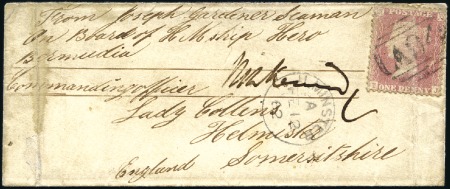 From Joseph Gardener Seaman
On Board of H M ship Hero
Bermudia
Commanding officer
Lady Collins
Somersitshire
England
ONE PENNY